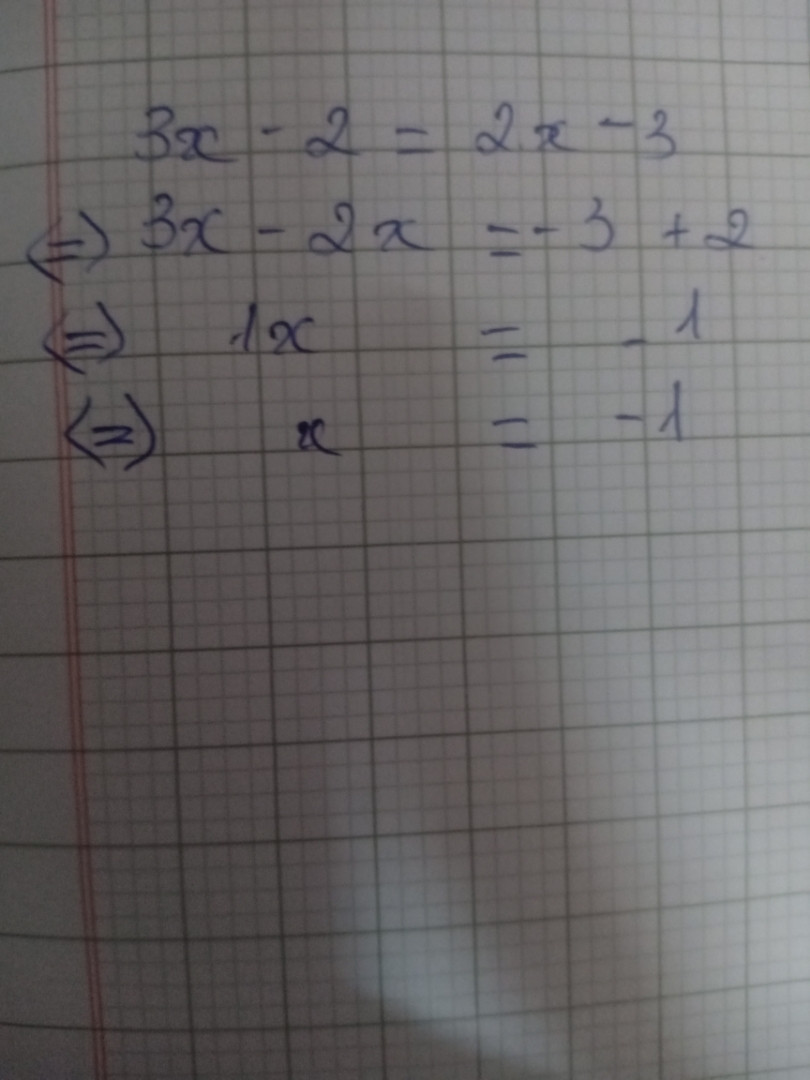 3x - 2 = 2x - 3
<=> 3x - 2x = - 3 + 2
<=> 1x = - 1
<=> x = - 1